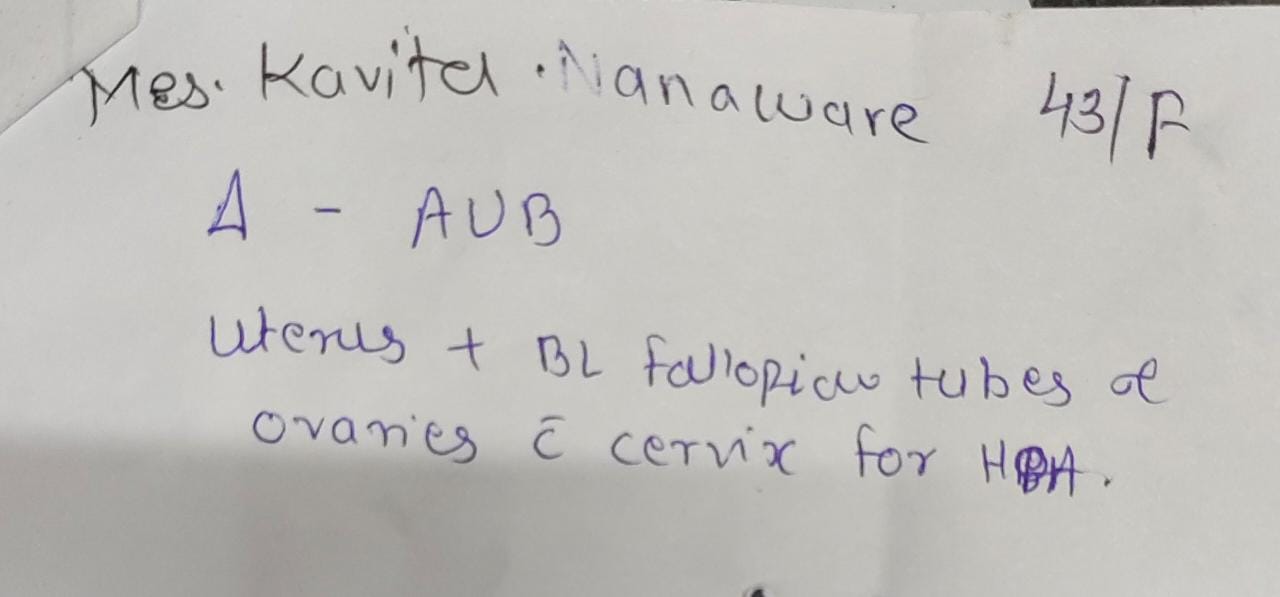 Mrs. Kavita . Nanaware 43/F
Δ - AUB
Uterus + BL fallopian tubes &
ovaries c̄ cervix for